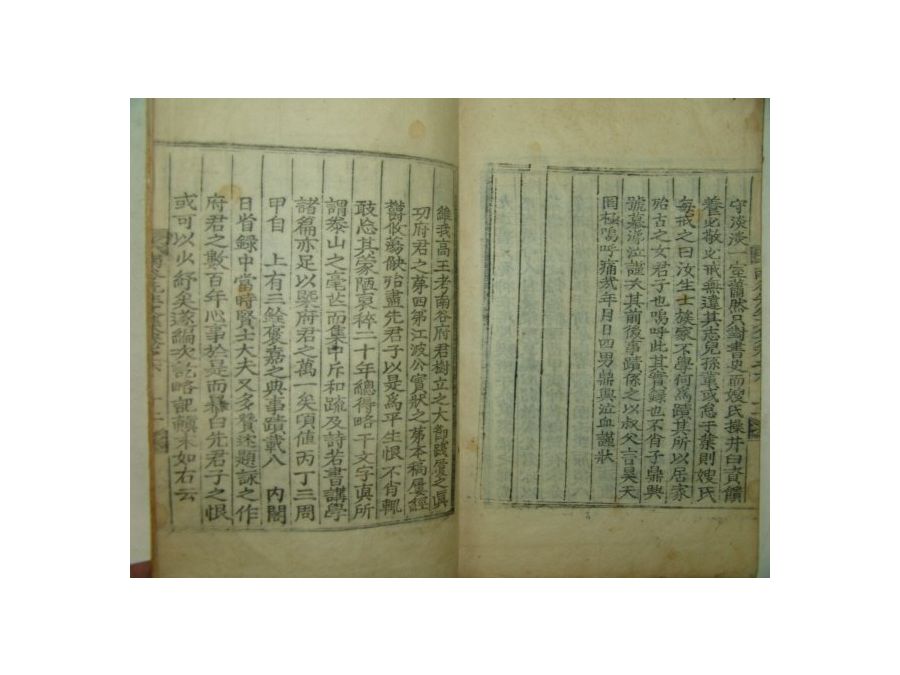 守淡淡一室蕭然只對書史而嫂氏操井臼資饋
養必敬必戒無違其志兒孫輩或怠于業則嫂氏
每戒之曰汝生士族家不學何爲蹟其所以居家
殆古之女君子也嗚呼此其實錄也不肖子鼎興
號慕涕泣謹撰其前後事蹟係之以叔父言昊天
罔極嗚呼痛哉年月日四男鼎興泣血謹狀
維我高王考南谷府君樹立之大節踐屨之眞
功府君之第四弟江波公實狀之第本稿屢經
鬱攸蕩缺殆盡先君子以是爲平生恨不肖輒
敢忘其蒙陋哀稡二十年總得略干文字眞所
謂泰山之毫芒而集中斥和疏及詩若書講學
諸篇亦足以槩府君之萬一矣頃値丙丁三周
甲自 上有三銓褒嘉之典事蹟載入 內閣
日省錄中當時賢士大夫又多贊述題詠之作
府君之數百年心事於是而暴白先君子之恨
或可以少紓矣遂編次訖略記顚末如右云